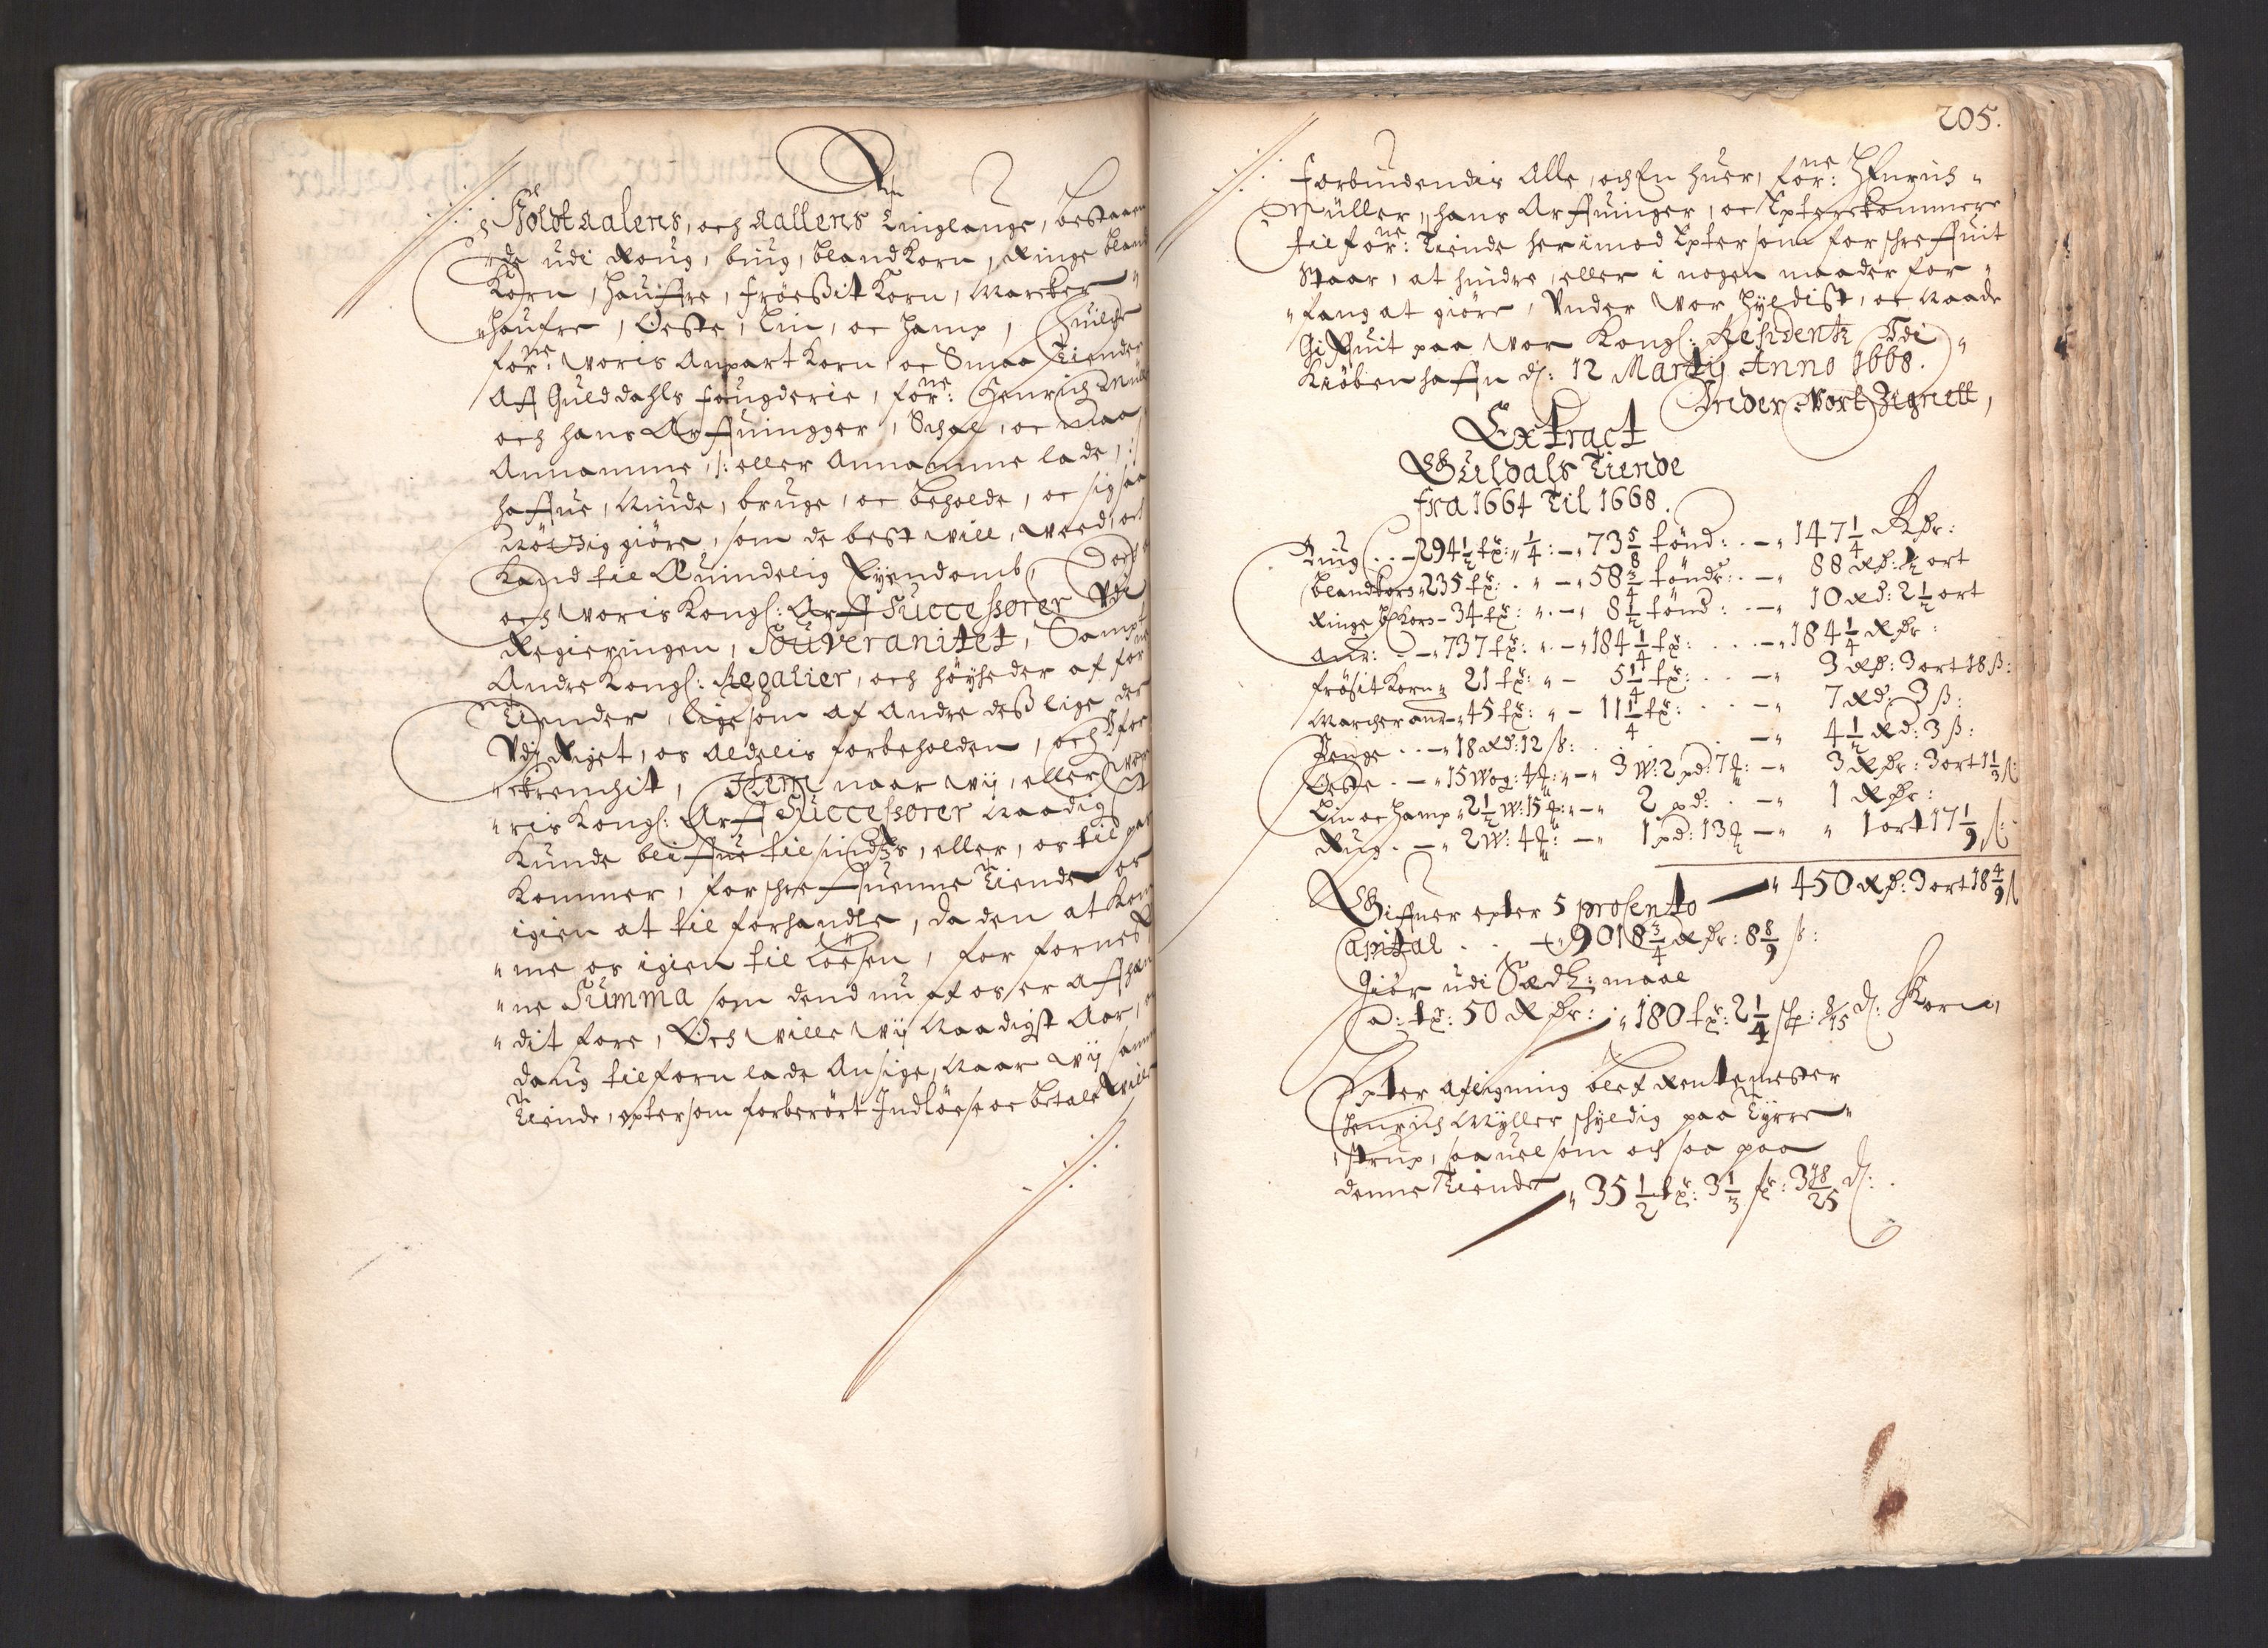 Holdtaalens, och Aallens Tinglauge, bestaaen
de udi Roug, biug, bland Korn, Ringe bland
Korn, Hauffre, frøesßit Korn, Marcker
haufre, Oeste, Lin, oc Hamp, Huilche
for:ne Woris Anpart Korn oc Smaa Tiender
Aff Guld dahls fougderie, for:ne Henrich Müll
och hans Arffuingger, Schal, oc maa
Annamme, /: eller Annamme lade, :/
haffue, Niude, bruge, oc beholde, oc sig saa
Nøttig giøre, som de best will, weed, oc
Kand til Æuindelig Eyendomb, Doch
och Woris Kongl: Arff Successorer Udi
Regieringen, Souveranitet, Sampt
Andre Kongl: Regalier, och høyheder af for:ne
Tiender, ligesom af Andre desß lige der
Udj Riget, os Aldelis forbeholden, och Ufor
kremchit, Item naar Wij, eller Wo
ris Kongl: Arff Successorer Naadigst
Kunde bliffue til sinds, eller, os til pas
Kommer, forschreffuenne Tiender os
igien at til forhandle, da den at Kom
me os igien til Løesen, for fornef
ne Summa som dend nu af os er Affhæn
dit fore, Och wille Wij Naadigst Aar, oc
daug tilforn lade Ansige, Naar Wij samme
Tiende, epter som forberørt Indløese oc betale Wille
205.
Forbiudendis Alle, och En huer, for:ne Henrich
Müller, hans Arffuinger, oc Epterkommere
til for:ne Tiende herimod Epter som forschreffuit
Staar, at hindre, eller i nogen maader for
fang at giøre, Under Wor Hyldist, oc Naade
Giffuit paa Wor Kongl: Residentz Udi
Kiøbenhaffn d: 12 Martij Anno 1668.
Under Wort Zignett,
Extract
Guldals Tiende
fra 1664 Til 1668.
Biug . . - 294 1/2 tr: 1/4: - 73 5/8 tønd: . - 147 1/4 Rdr:
Blandkorn 235 tr: . - 58 3/4 tønder: . - 88 Rd: 1/2 ort
Ringe bl Korn - 34 tr: . - 8 1/2 tønd: . - 10 Rd: 2 1/2 ort
Aur: - 737 tr: . - 184 1/4 tr: . . . - 184 1/4 Rdr:
frøsit Korn 21 tr: - 5 1/4 tr: . . - 3 Rd: 3 ort 18 ß:
Marcher aur - 45 tr: - 11 1/4 tr: . . - 7 Rd: 3 ß:
Penge . . - 18 Rd: 12 ß: . . . - 4 1/2 Rd: 3 ß:
Oeste . - 15 Wog: 4 ℔: - 3 W: 2 pd: 7 ℔: - 3 Rdr: 3 ort 1 1/3 ß:
Lin oc Hamp 2 1/2 W: 15 ℔: - 2 pd: . - 1 Rdr:
Rug . - 2 W: 4 ℔: - 1 pd: 13 ℔ - 1 ort 17 1/9 ß:
450 Rd: 3 ort 18 4/9 ß
Giffuer epter 5 prosento
Capital . . 9018 3/4 Rdr: 8 8/9 ß:
Giør udi Sædl: maal
a: tr: 50 Rdr: 180 tr: 2 1/4 skp: 8/15 d: Korn
Epter afligning blef Rentemester
Henrich Myller schyldig paa Tyrre
strup, saauel som och saa paa
denne Tiende 35 1/2 tr: 3 1/3 skr: 3 18/25 d: